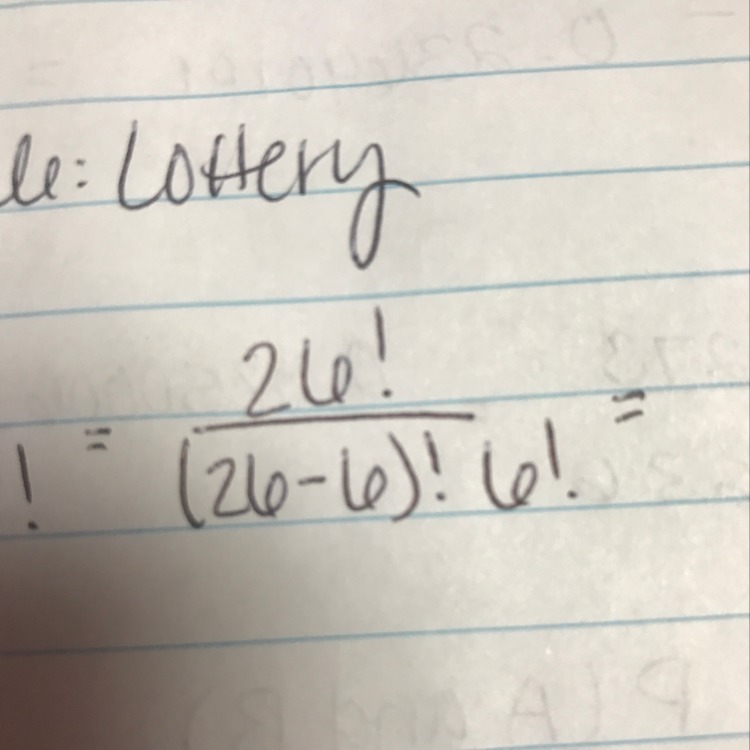 le: Lottery
! = 26! / (26-6)! 6! =